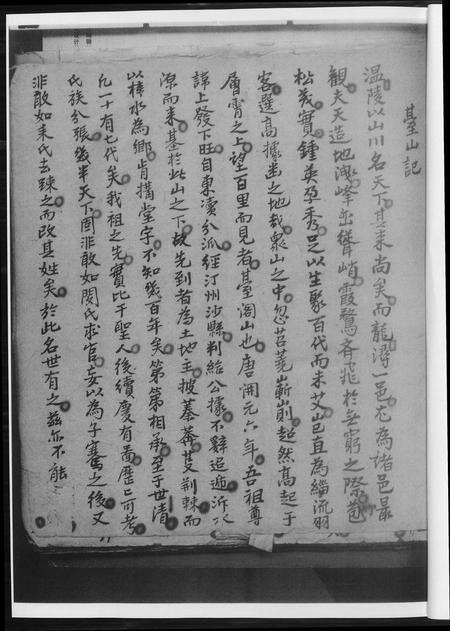 臺山記
温陵以山川名天下其来尚矣而龍潯一邑尤為諸邑最
観夫天造地泄峰巒聳峭霞鶩齊飛於無窮之際蒼
松茂實鍾英孕秀足以生聚百代而未艾也直為緇流羽
客選高據幽之地哉衆山之中忽苕荛嶄崱超然高起于
層霄之上望百里而見者臺閣山也唐開元六年吾祖尊
諱上發下旺自東瀆分派經汀州沙縣判給公據不辭迢遞泝水
源而来基於此山之下故先到者為土地主披蓁蓽芟荆棘而
以梓水為鄉肯搆堂宇不知幾百年矣第第相承至于世清
凢一十有七代矣我祖之先實比干聖人後續慶有啚歷亡可考
氏族分張幾半天下固非敢如閔氏求官妄以為子騫之後又
非敢如束氏去踈之而改其姓矣於此名世有之兹亦不能